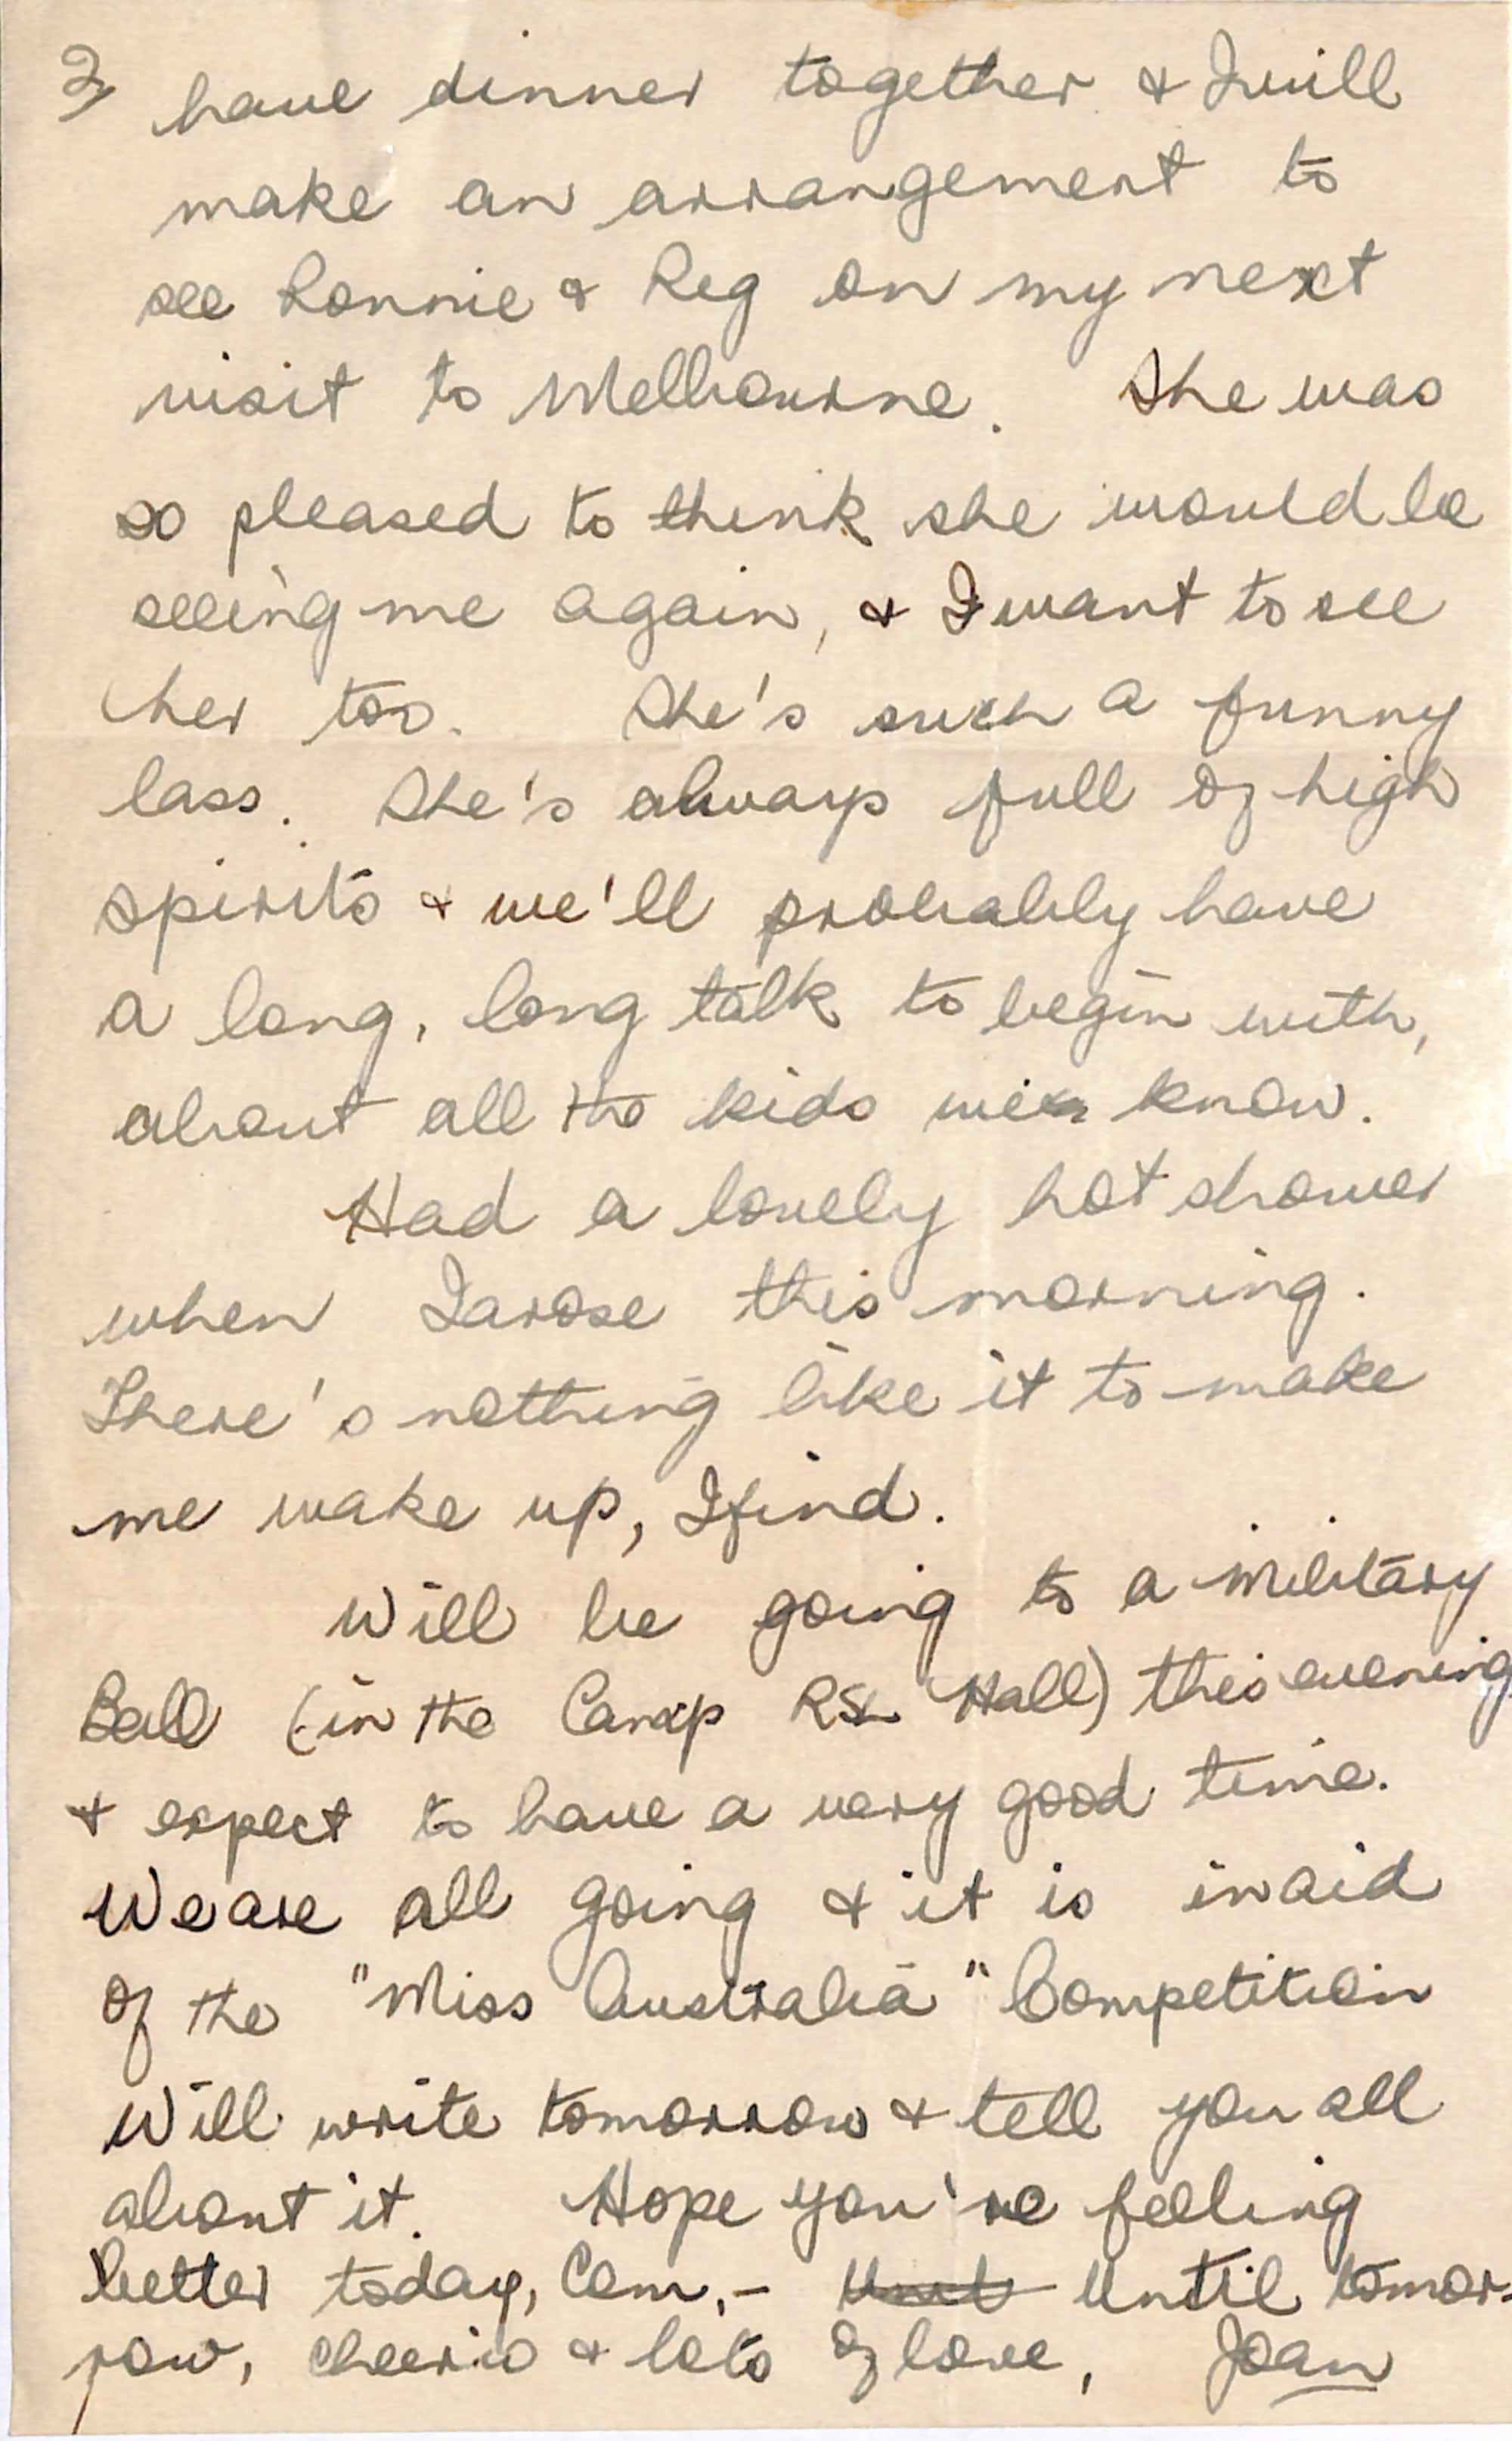 2 have dinner together & I will
make an arrangement to
see Ronnie & Reg on my next
visit to Melbourne. She was
so pleased to think she would be
seeing me again, & I want to see
her too. She's such a funny
lass. She's always full of high
spirits & we'll probably have
a long, long talk to begin with,
about all the kids we know.
Had a lovely hot shower
when I arose this morning.
There's nothing like it to make
me wake up, I find.
Will be going to a military
Ball (in the Camp RSL Hall) this evening
& expect to have a very good time.
We are all going & it is in aid
of the "Miss Australia" Competition
Will write tomorrow & tell you all
about it. Hope you're feeling
better today, Com,- Until tomor-
row, cheerio & lots of love, Joan